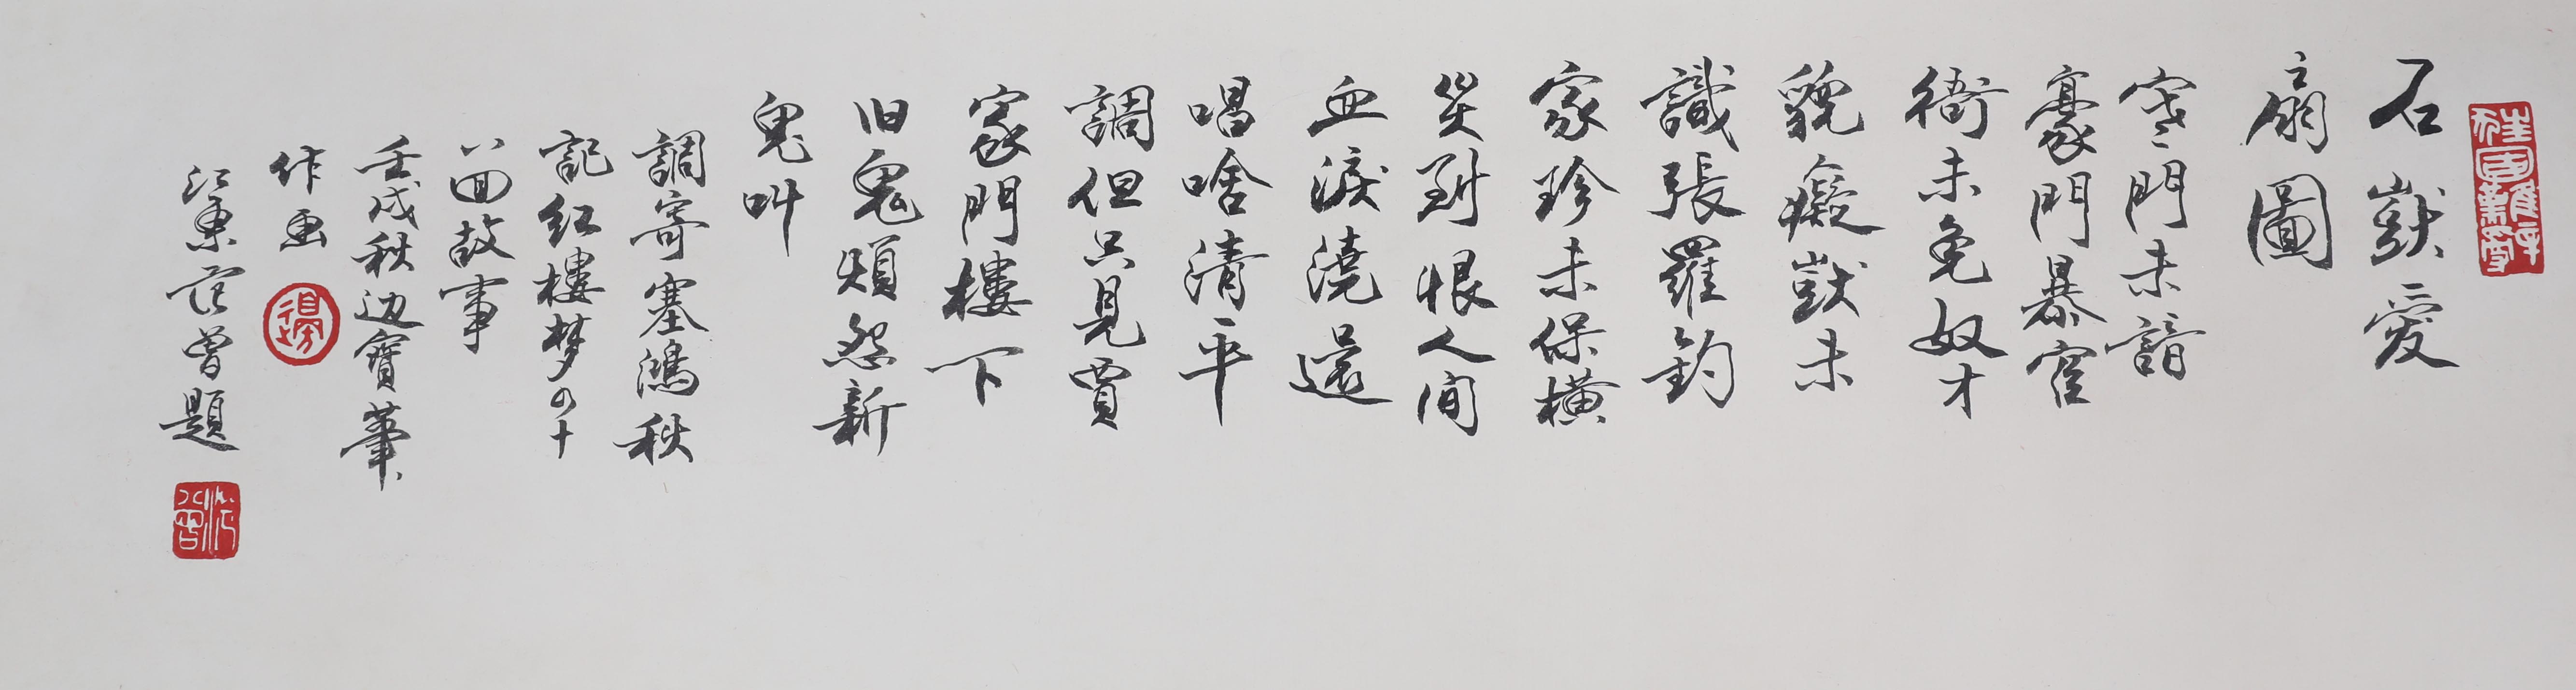 石獃愛
扇圖
寒門未諳
豪門暴官
衙未免奴才
貌癡獃未
識張羅鈎
家珍未保橫
災到恨人间
血淚澆還
唱啥清平
調但只見賈
家門樓下
旧鬼煩怨新
鬼叫
調寄塞鴻秋
記红樓梦四十
八回故事
壬戌秋边寶華
作画
江東范曾題
邊
范曾